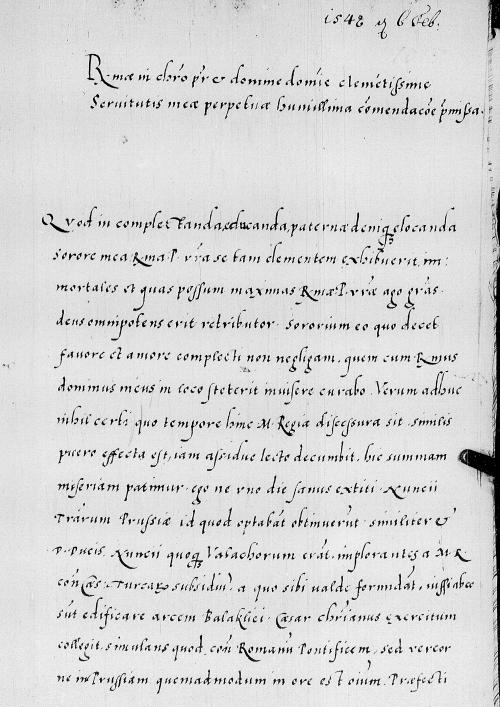 1542 6 Feb.
R.mæ in chro pr et domine domie clemetissime
Seruitutis meæ perpetuæ humilima comendacoe pmissa.
Quod in complectanda, educanda, paternæ deniq elocanda
sorore mea Rma P. vra se tam clementem exhibuerit, im:
mortales et quas possum maximas Rmæ P. vræ ago gras.
deus omnipotens erit retributor. Sororium eo quo decet
fauore et amore complecti non negligam, quem cum Rmus
dominus meus in loco steterit inuisere curabo. Verum adhuc
nihil certi quo tempore hinc M. Regia discessura sit. similis
puero effecta est, iam assidue lecto decumbit. hic summam
miseriam patimur. ego ne vno die sanus extiti. Nuncii
Trarum Prussiæ id quod optabat obtinuerut. similiter et
D. Ducis. Nuncii quoq Valachorum erat, implorantes a M. R.
con Cæs. Turcar subsidiu, a quo sibi valde formidat, iussi
sut edificare arcem Balakliei. Cæsar chrianus exercitum
collegit, simulans quod con Romanu Pontificem, sed vereor
ne in Prussiam quemadmodum in ore est oium. Præfecti